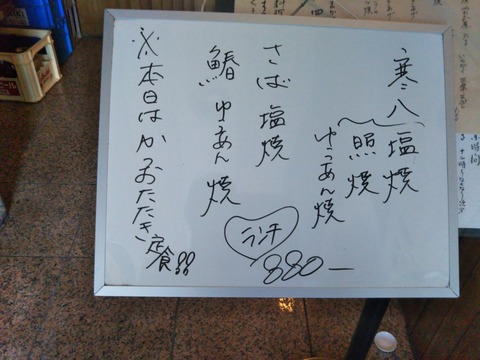 寒八 塩焼
照焼
ゆうあん焼
さば塩焼
鰆ゆうあん焼
※本日はかつおたたき定食!!
ランチ
880ー